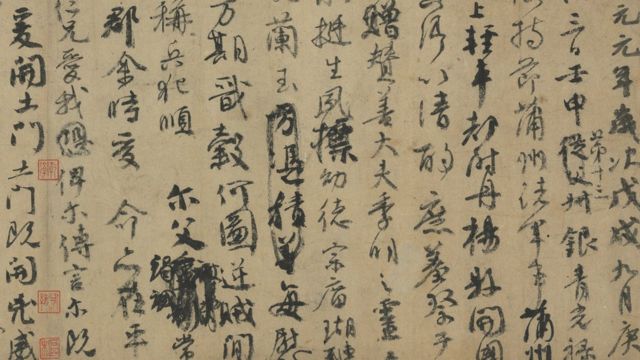 元元年歲次戊戌九月庚
三日壬申第十三從父叔銀青光祿
持節蒲州諸軍事蒲州
上輕車都尉丹楊縣開國
卿以清酌庶羞祭于
贈贊善大夫季明之靈
挺生夙標幼德宗廟瑚璉
蘭玉方憑積善每慰
方期戩穀何圖逆賊間
稱兵犯順爾父竭誠常
郡余時受命亦在平
仁兄愛我恐俾爾傳言爾既
爰開土門土門既開凶威